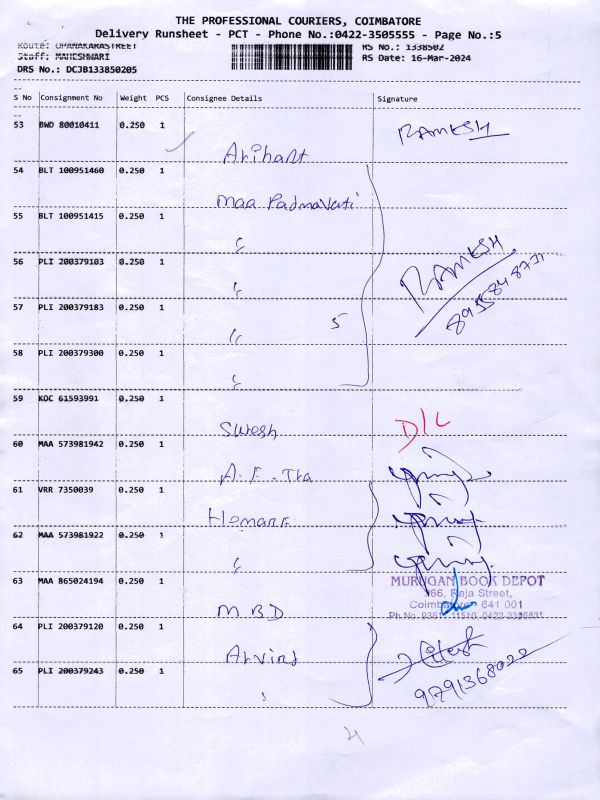 THE PROFESSIONAL COURIERS, COIMBATORE
Delivery Runsheet - PCT - Phone No.:0422-3505555 - Page No.:5
Route: OPANAKARASTREET RS No.: 1338502
Staff: MAHESHWARI RS Date: 16-Mar-2024
DRS No.: DCJB133850205
S No Consignment No Weight PCS Consignee Details Signature
53 BWD 80010411 0.250 1 RAMESH
Arihant
54 BLT 100951460 0.250 1
Maa Padmavati
55 BLT 100951415 0.250 1
"
56 PLI 200379103 0.250 1 RAMESH
"
57 PLI 200379183 0.250 1 5
"
58 PLI 200379300 0.250 1
"
59 KOC 61593991 0.250 1
Suresh D/L
60 MAA 573981942 0.250 1
61 VRR 7350039 0.250 1
62 MAA 573981922 0.250 1
"
63 MAA 865024194 0.250 1 MURUGAN BOOK DEPOT
366, Raja Street,
M.B.D Coimbatore 641 001
64 PLI 200379120 0.250 1
Arvind
65 PLI 200379243 0.250 1 9791368022
"
4